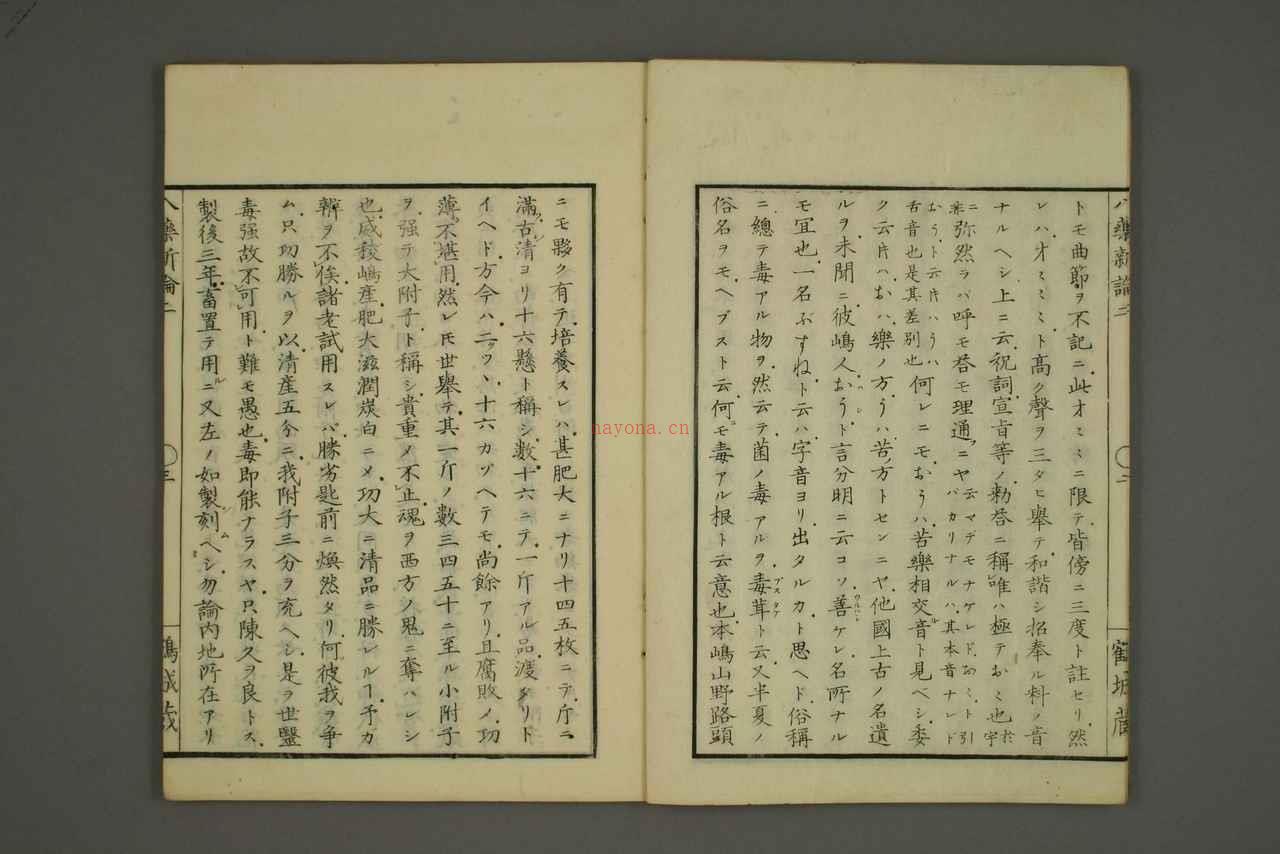 八藥新論二
〇二
トモ曲節ヲ不記ニ此オミミニ限テ皆傍ニ三度ト註セリ然
レハオミミミト高ク聲ヲ三タヒ擧テ和諧シ招奉ル料ノ音
ナルヘシ上ニ云祝詞宣旨等ノ勅答ニ稱唯ハ極テおミ也
弥然ラバ呼モ答モ理通ニヤ
云マデモナケレドおミト引
バカリナルハ其本音ナレド
おうト云片ハうハ
舌音也是其差別也
何レニモおうハ苦樂相交音ト見ベシ委
ク云片ハおハ樂ノ方うハ苦ノ方トセンニヤ他國上古ノ名遺
ルヲ未聞ニ彼嶋人おうト言分明ニ云コソ善ケレ名所ナル
モ冝也一名ぶすねト云ハ字音ヨリ出タルカト思ヘド俗稱
ニ總テ毒アル物ヲ然云テ菌ノ毒アルヲ毒茸ト云又半夏ノ
俗名ヲモヘブスト云何モ毒アル根ト云意也本嶋山野路頭
ニモ夥ク有テ培養スレハ甚肥大ニナリ十四五枚ニテ斤ニ
滿古清ヨリ十六懸ト稱シ數十六ニテ一斤アル品渡タリト
イヘド方今ハ二ツヽ十六カゾヘテモ尚餘アリ且腐敗メ功
薄不堪用然レ𪜈世擧テ其一斤ノ數三四五十ニ至ル小附子
ヲ强テ大附子ト稱シ貴重メ不止魂ヲ西方ノ鬼ニ奪ハレシ
也感稜嶋産肥大滋潤炭白ニメ功大ニ清品ニ勝レルヿ予カ
辨ヲ不俟諸老試用スレバ勝劣匙前ニ煥然タリ何彼我ヲ爭
ム只功勝ルヲ以清産五分ニ我附子三分ヲ充ヘシ是ヲ世醫
毒强故不可用ト難モ愚也毒即能ナラスヤ只陳久ヲ良トス
製後三年畜置テ用ニ又左ノ如製刻ヘシ勿論内地所在アリ
八藥新論二
〇三
nayona.cn